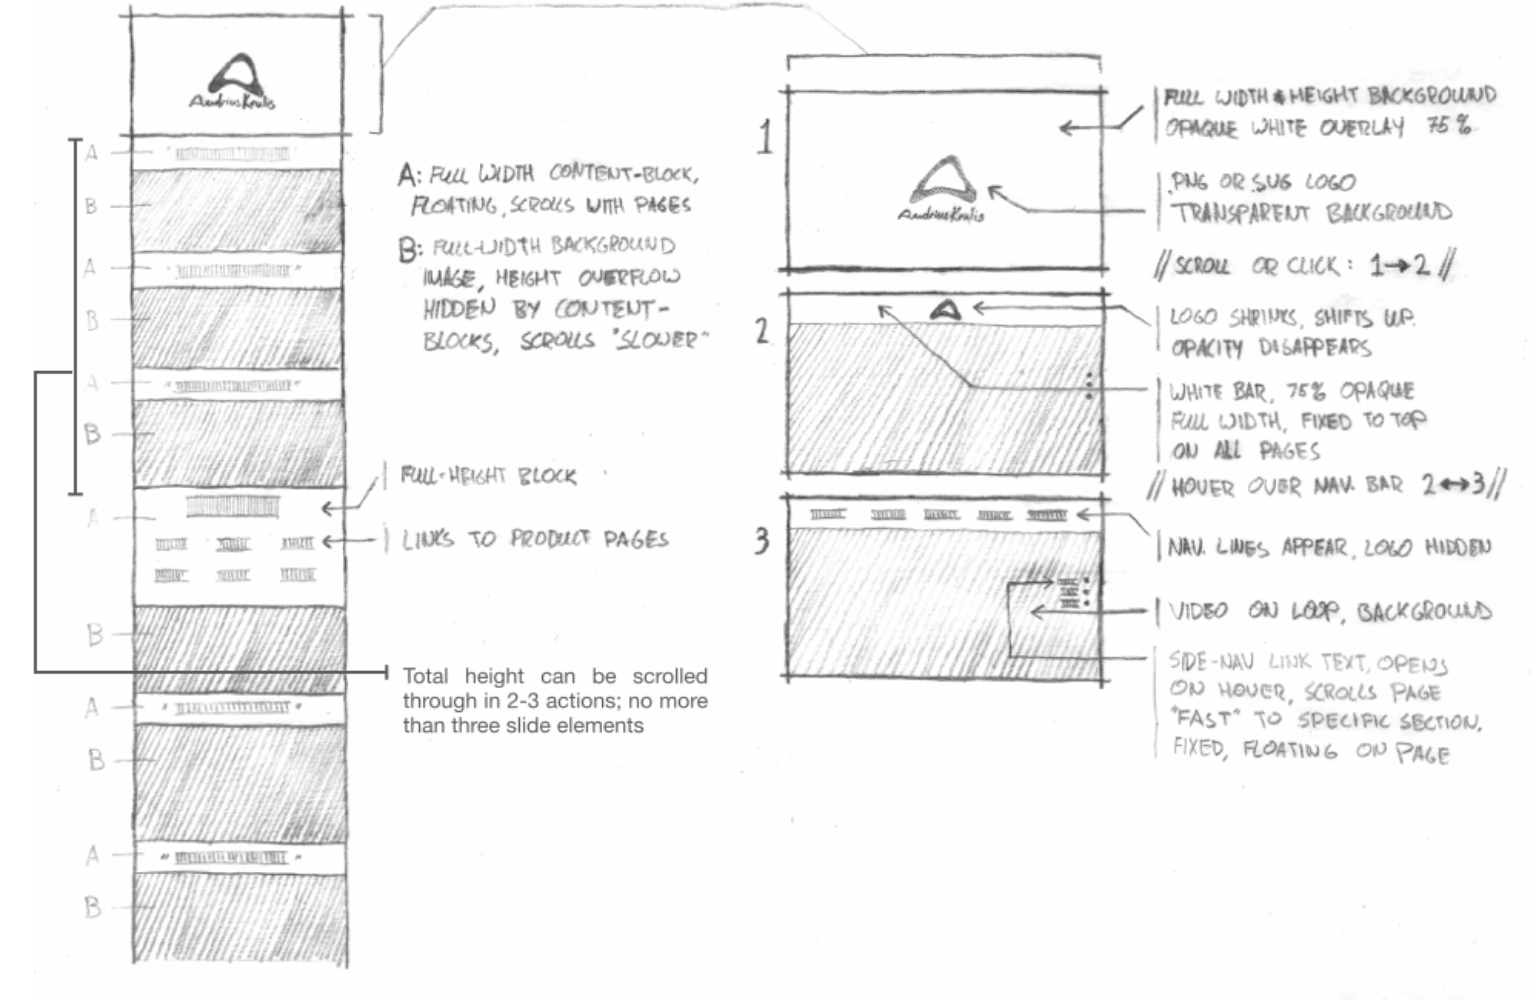 AndriusKralis
A
B
A
B
A
B
A
B
A
B
A
B
A: FULL WIDTH CONTENT-BLOCK,
FLOATING, SCROLLS WITH PAGES
B: FULL-WIDTH BACKGROUND
IMAGE, HEIGHT OVERFLOW
HIDDEN BY CONTENT-
BLOCKS, SCROLLS "SLOWER"
FULL-HEIGHT BLOCK
LINKS TO PRODUCT PAGES
Total height can be scrolled
through in 2-3 actions; no more
than three slide elements
1
AndriusKralis
FULL WIDTH & HEIGHT BACKGROUND
OPAQUE WHITE OVERLAY 75%
.PNG OR .SVG LOGO
TRANSPARENT BACKGROUND
// SCROLL OR CLICK: 1→2 //
2
LOGO SHRINKS, SHIFTS UP.
OPACITY DISAPPEARS
WHITE BAR, 75% OPAQUE
FULL WIDTH, FIXED TO TOP
ON ALL PAGES
// HOVER OVER NAV. BAR 2↔3 //
3
NAV. LINES APPEAR, LOGO HIDDEN
VIDEO ON LOOP, BACKGROUND
SIDE-NAV LINK TEXT, OPENS
ON HOVER, SCROLLS PAGE
"FAST" TO SPECIFIC SECTION,
FIXED, FLOATING ON PAGE